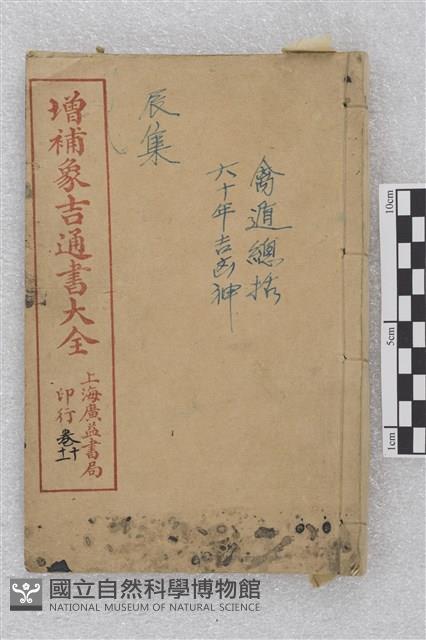 禽遁總括
六十年吉凶神
辰集
增補象吉通書大全
上海廣益書局
印行
卷十
十一
10cm
5cm
1cm
國立自然科學博物館
NATIONAL MUSEUM OF NATURAL SCIENCE